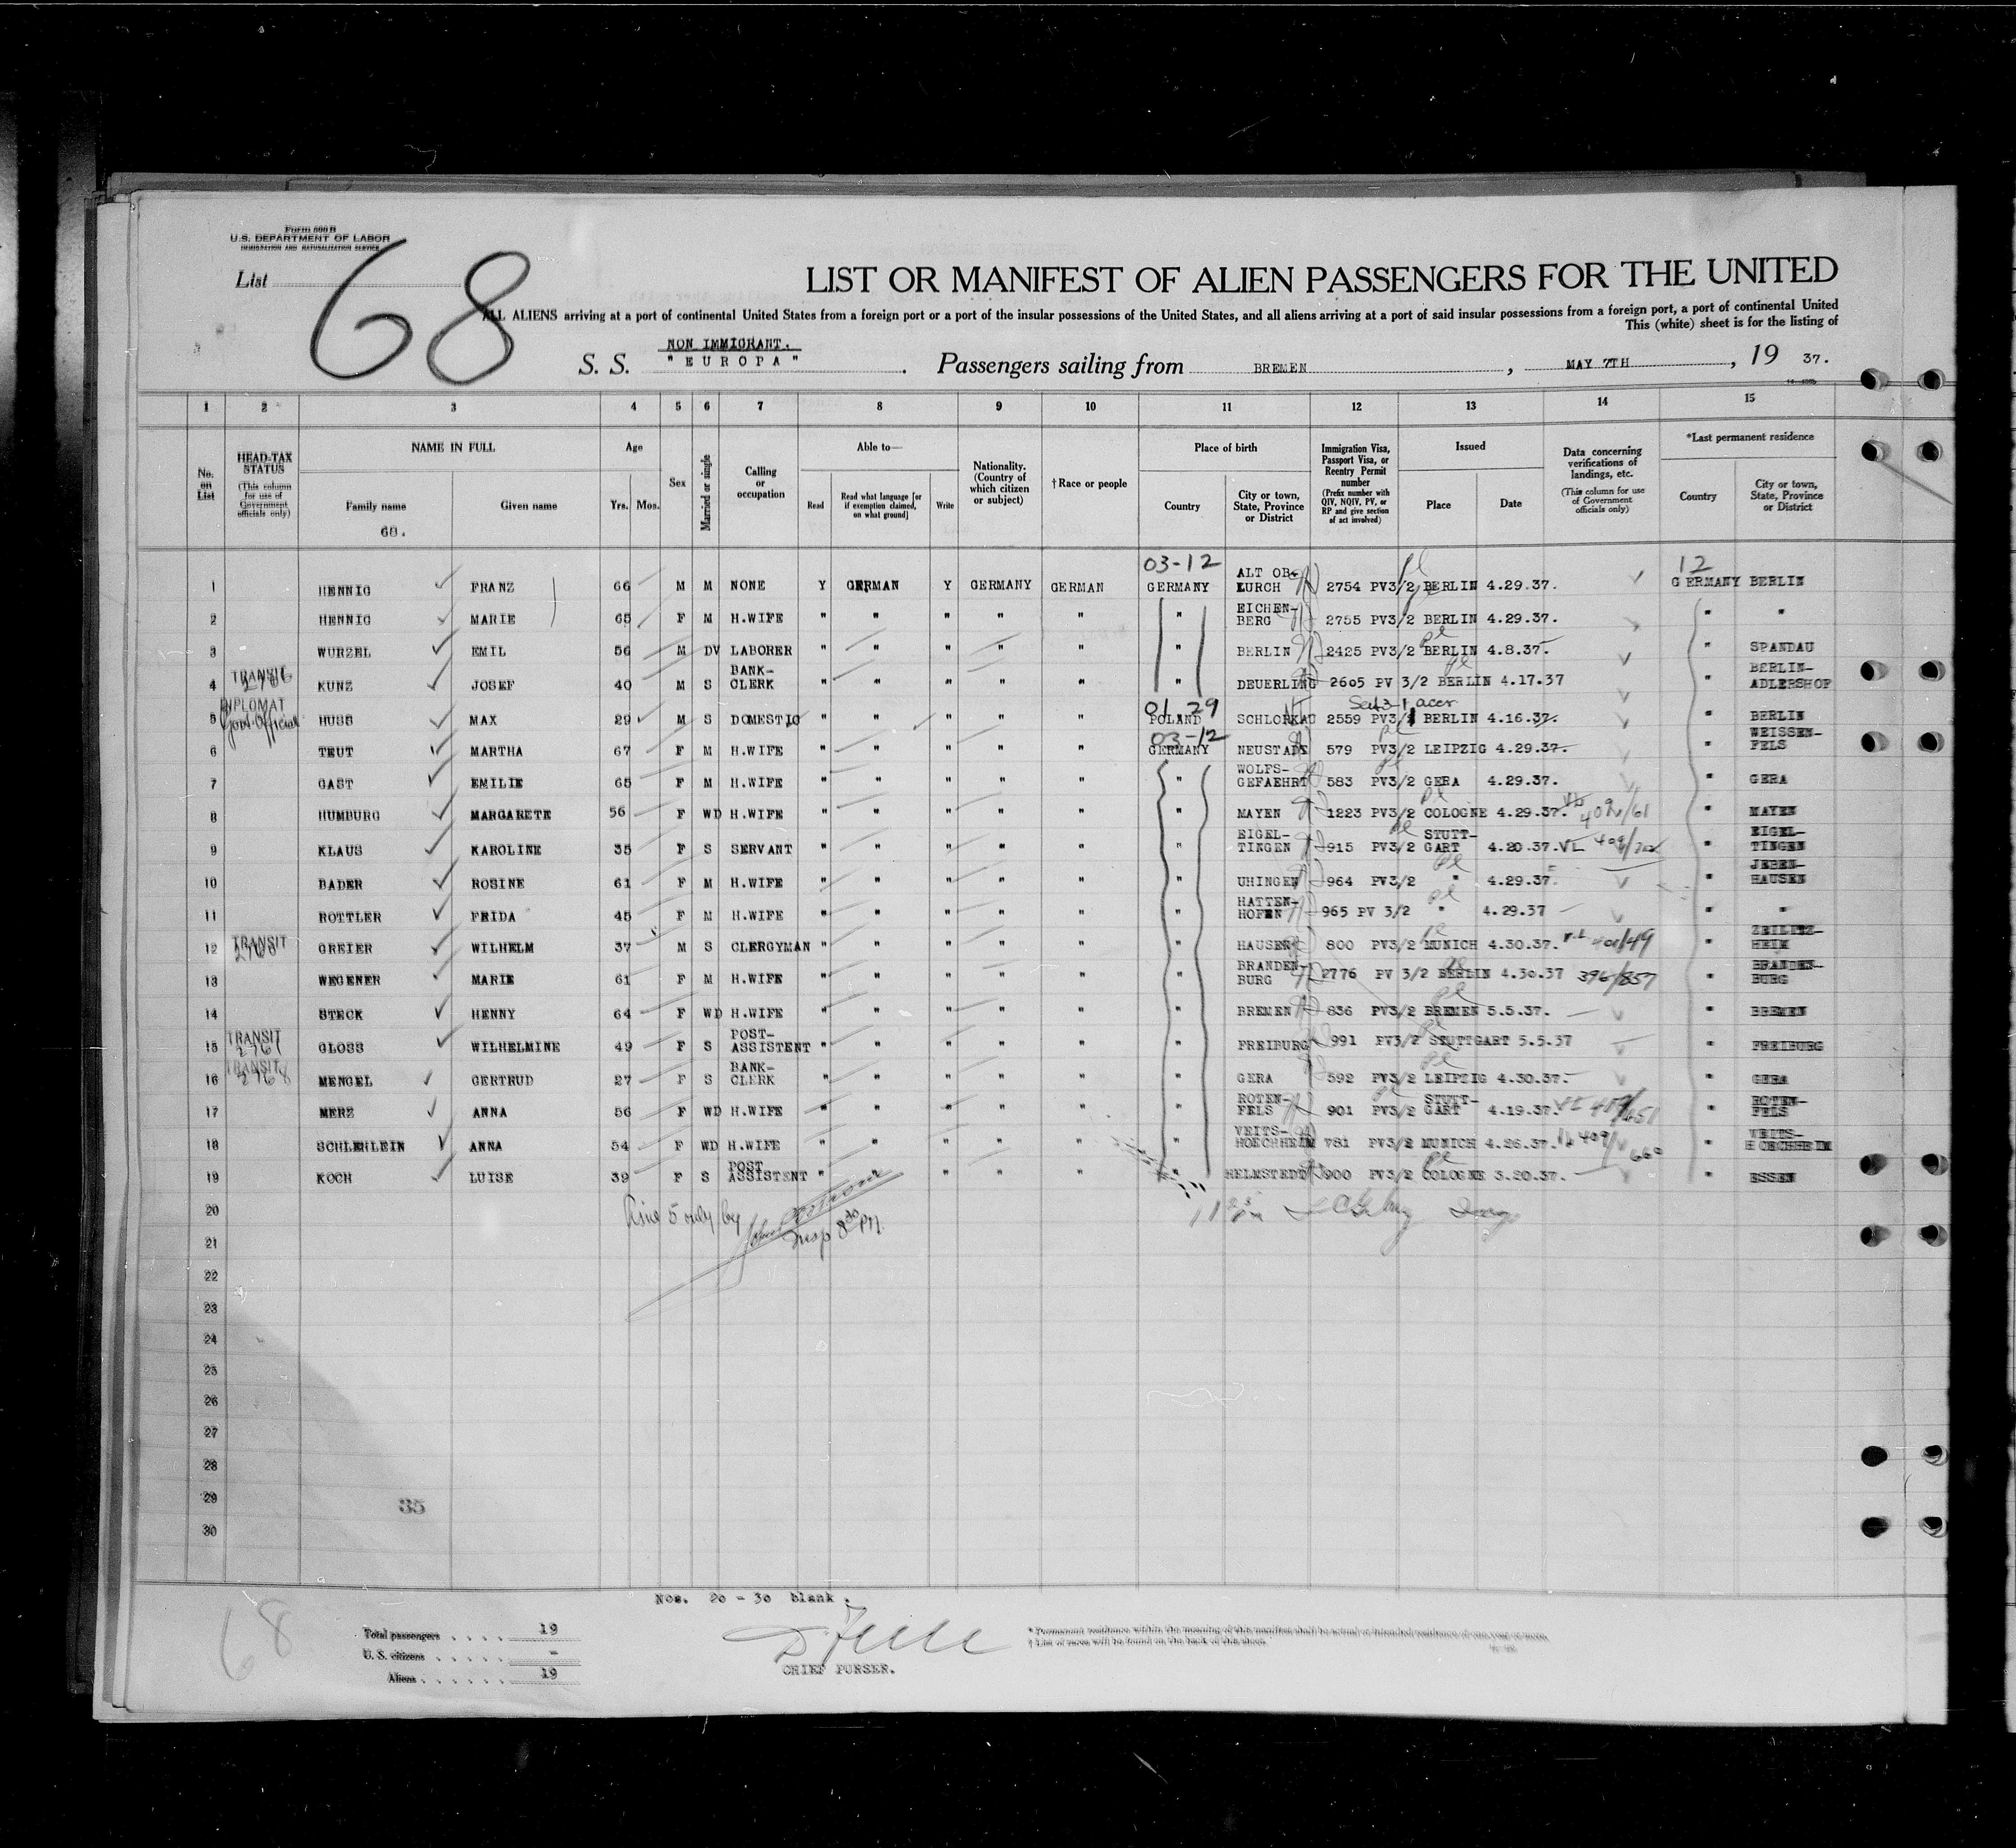 Form 500 B
U.S. DEPARTMENT OF LABOR
IMMIGRATION AND NATURALIZATION SERVICE
List 68
LIST OR MANIFEST OF ALIEN PASSENGERS FOR THE UNITED
ALL ALIENS arriving at a port of continental United States from a foreign port or a port of the insular possessions of the United States, and all aliens arriving at a port of said insular possessions from a foreign port, a port of continental United
This (white) sheet is for the listing of
NON IMMIGRANT.
S. S. "EUROPA". Passengers sailing from BREMEN, MAY 7TH, 19 37.
1 2 3 4 5 6 7 8 9 10 11 12 13 14 15
No. on List
HEAD-TAX STATUS (This column for use of Government officials only)
NAME IN FULL Family name Given name
68.
Age Yrs. Mos.
Sex
Married or single
Calling or occupation
Able to— Read Read what language [or if exemption claimed, on what ground] Write
Nationality. (Country of which citizen or subject)
†Race or people
Place of birth Country City or town, State, Province or District
Immigration Visa, Passport Visa, or Reentry Permit number (Prefix number with QIV, NQIV, PV, or RP and give section of act involved)
Issued Place Date
Data concerning verifications of landings, etc. (This column for use of Government officials only)
*Last permanent residence Country City or town, State, Province or District
03-12 12
1 HENNIG FRANZ 66 M M NONE Y GERMAN Y GERMANY GERMAN GERMANY ALT OB- LURCH 2754 PV3/2 BERLIN 4.29.37. GERMANY BERLIN
2 HENNIG MARIE 65 F M H.WIFE " " " " " " EICHEN- BERG 2755 PV3/2 BERLIN 4.29.37. " "
3 WURZEL EMIL 56 M DV LABORER " " " " " " BERLIN 2425 PV3/2 BERLIN 4.8.37. SPANDAU
4 TRANSIT KUNZ JOSEF 40 M S BANK- CLERK " " " " " " DEUERLING 2605 PV 3/2 BERLIN 4.17.37 BERLIN- ADLERSHOF
01-29
5 DIPLOMAT Govt. Official HUSS MAX 29 M S DOMESTIC " " " " " POLAND SCHLORKAU 2559 PV3/1 BERLIN 4.16.37. " BERLIN
03-12
6 TEUT MARTHA 67 F M H.WIFE " " " " " GERMANY NEUSTADT 579 PV3/2 LEIPZIG 4.29.37. " WEISSEN- FELS
7 GAST EMILIE 65 F M H.WIFE " " " " " " WOLFS- GEFAEHRT 583 PV3/2 GERA 4.29.37. " GERA
8 HUMBURG MARGARETE 56 F WD H.WIFE " " " " " " MAYEN 1223 PV3/2 COLOGNE 4.29.37. " MAYEN
9 KLAUS KAROLINE 35 F S SERVANT " " " " " " EIGEL- TINGEN 915 PV3/2 STUTT- GART 4.20.37. " EIGEL- TINGEN
10 BADER ROSINE 61 F M H.WIFE " " " " " " UHINGEN 964 PV3/2 " 4.29.37. " JEBEN- HAUSEN
11 ROTTLER FRIDA 45 F M H.WIFE " " " " " " HATTEN- HOFEN 965 PV 3/2 " 4.29.37 " "
12 TRANSIT GREIER WILHELM 37 M S CLERGYMAN " " " " " " HAUSER 800 PV3/2 MUNICH 4.30.37. " ZEILITZ- HEIM
13 WEGENER MARIE 61 F M H.WIFE " " " " " " BRANDEN- BURG 2776 PV 3/2 BERLIN 4.30.37 396/857 " BRANDEN- BURG
14 STECK HENNY 64 F WD H.WIFE " " " " " " BREMEN 836 PV3/2 BREMEN 5.5.37. " BREMEN
15 TRANSIT GLOSS WILHELMINE 49 F S POST- ASSISTENT " " " " " " FREIBURG 991 PV3/2 STUTTGART 5.5.37 " FREIBURG
16 TRANSIT MENGEL GERTRUD 27 F S BANK- CLERK " " " " " " GERA 592 PV3/2 LEIPZIG 4.30.37. " GERA
17 MERZ ANNA 56 F WD H.WIFE " " " " " " ROTEN- FELS 901 PV3/2 STUTT- GART 4.19.37. " ROTEN- FELS
18 SCHLEHLEIN ANNA 54 F WD H.WIFE " " " " " " VEITS- HOECHHEIM 781 PV3/2 MUNICH 4.26.37. " VEITS- HOECHHEIM
19 KOCH LUISE 39 F S POST ASSISTENT " " " " " " HELMSTEDT 900 PV3/2 COLOGNE 3.20.37. " ESSEN
20 Line 5 only by
21 Insp 8 30 PM.
22
23
24
25
26
27
28
29 35
30
Nos. 20 - 30 blank.
68
Total passengers . . . . 19
U. S. citizens . . . . . -
Aliens . . . . . . 19
CHIEF PURSER.
* Permanent residence within the meaning of this manifest shall be actual or intended residence of one year or more.
† List of races will be found on the back of this sheet.